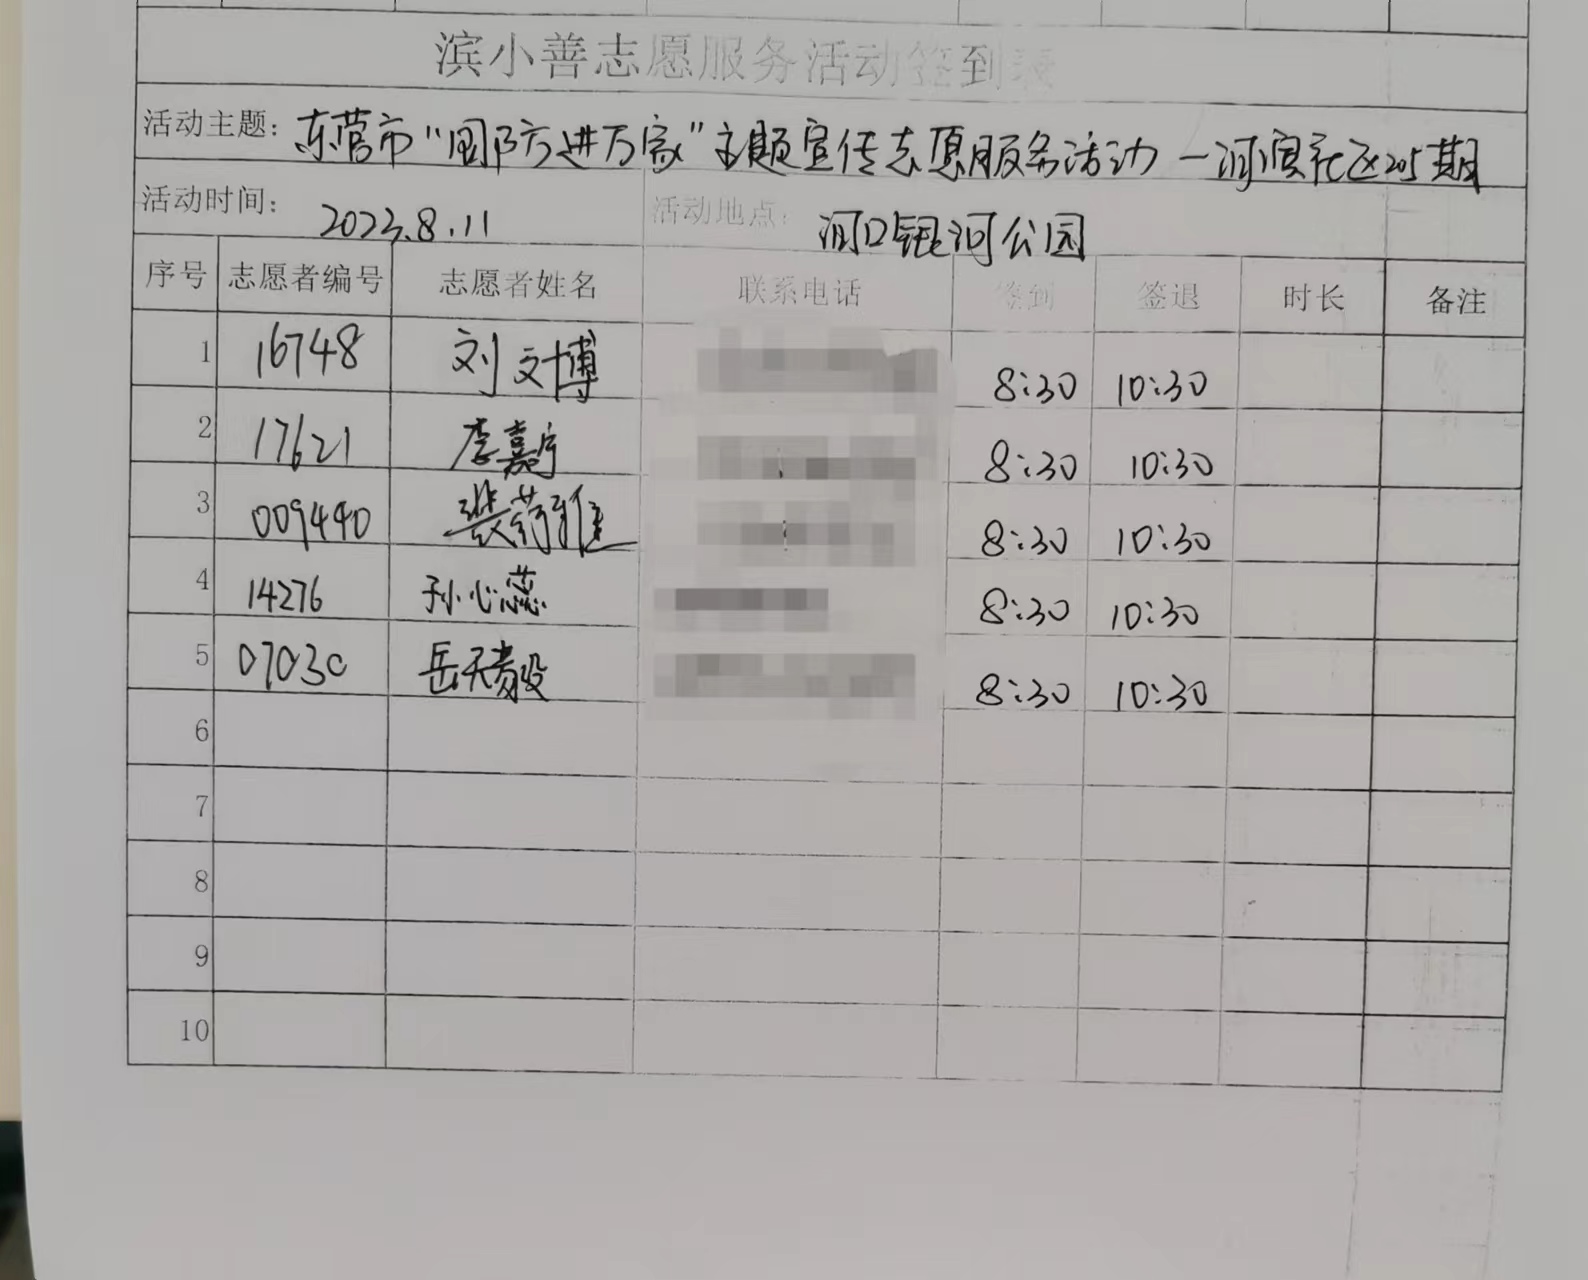 滨小善志愿服务活动签到表
活动主题: 东营市"国防进万家"主题宣传志愿服务活动—河滨社区205期
活动时间: 2023.8.11 活动地点: 河口银河公园
序号 志愿者编号 志愿者姓名 联系电话 签到 签退 时长 备注
1 16748 刘文博 8:30 10:30
2 17621 李嘉宁 8:30 10:30
3 009440 8:30 10:30
4 14276 孙心蕊 8:30 10:30
5 07030 岳天毅 8:30 10:30
6
7
8
9
10